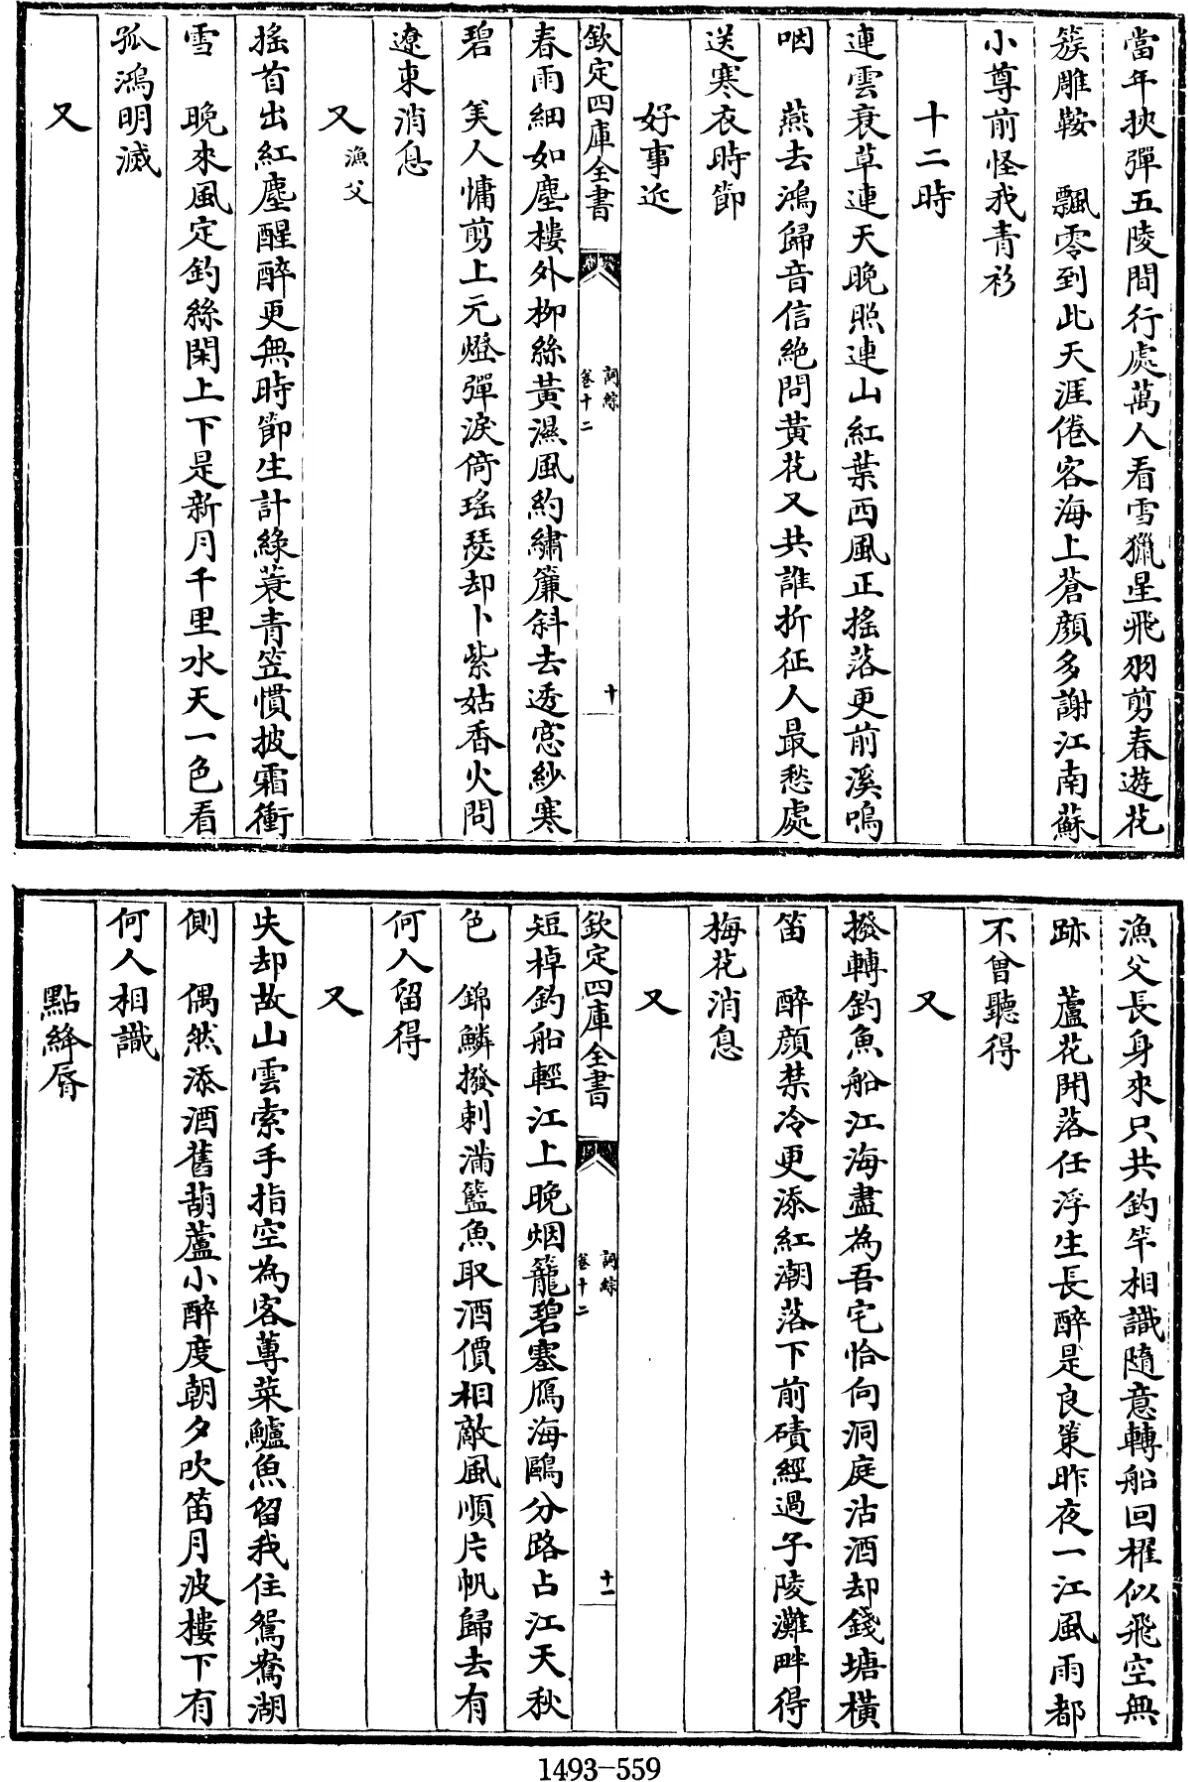 當年挾彈五陵間行處萬人看雪獵星飛羽剪春遊花
簇雕鞍　飄零到此天涯倦客海上蒼顔多謝江南蘇
小尊前怪我青衫
十二時
連雲衰草連天晚照連山紅葉西風正搖落更前溪鳴
咽　燕去鴻歸音信絶問黄花又共誰折征人最愁處
送寒衣時節
好事近
欽定四庫全書
詞綜
卷十二
十
春雨細如塵樓外柳絲黄濕風約繡簾斜去透窻紗寒
碧　美人慵剪上元燈彈淚倚瑤瑟却卜紫姑香火問
遼東消息
又漁父
搖首出紅塵醒醉更無時節生計緑蓑青笠慣披霜衝
雪　晚來風定釣絲閑上下是新月千里水天一色看
孤鴻明滅
又
漁父長身來只共釣竿相識隨意轉船回櫂似飛空無
跡　蘆花開落任浮生長醉是良策昨夜一江風雨都
不曾聽得
又
撥轉釣魚船江海盡為吾宅恰向洞庭沽酒却錢塘橫
笛　醉顔禁冷更添紅潮落下前磧經過子陵灘畔得
梅花消息
又
欽定四庫全書
詞綜
卷十二
十一
短棹釣船輕江上晚烟籠碧塞鴈海鷗分路占江天秋
色　錦鱗撥剌滿籃魚取酒價相敵風順片帆歸去有
何人留得
又
失却故山雲索手指空為客蓴菜鱸魚留我住鴛鴦湖
側　偶然添酒舊葫蘆小醉度朝夕吹笛月波樓下有
何人相識
點絳脣
1493-559